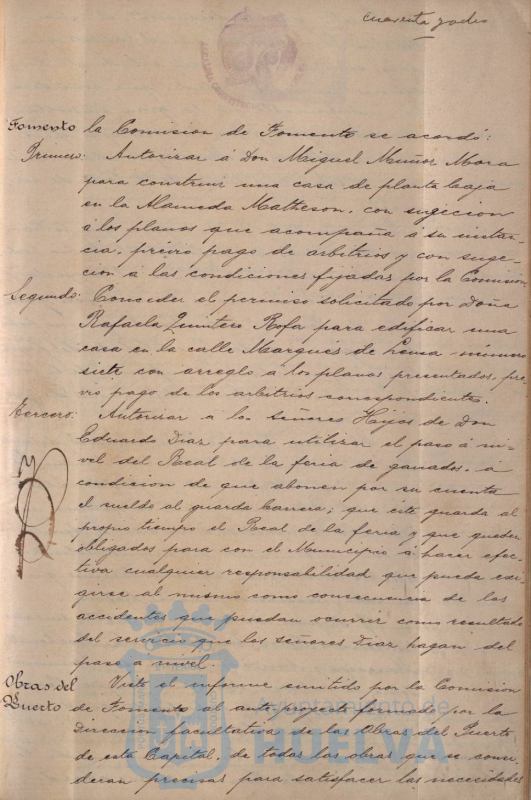 cuarenta y ocho
Fomento la Comision de Fomento se acordó:
Primero: Autorizar á Don Miguel Muñoz Mora
para construir una casa de planta baja
en la Alameda Matheson, con sugecion
á los planos que acompaña á su instan-
cia, prévio pago de arbitrios y con suge-
cion á las condiciones fijadas por la Comision
Segundo: Conceder el permiso solicitado por Doña
Rafaela Quintero Rofa para edificar una
casa en la calle Marqués de número
siete con arreglo á los planos presentados, pre-
vio pago de los arbitrios correspondientes.
Tercero: Autorizar á los señores Hijos de Don
Eduardo Diaz para utilizar el paso á ni-
vel del Real de la feria de ganados, á
condicion de que abonen por su cuenta
el sueldo al guarda barrera; que este guarda al
propio tiempo el Real de la feria y que queden
obligados para con el Municipio á hacer efec-
tiva cualquier responsabilidad que pueda exi-
girse al mismo como consecuencia de los
accidentes que puedan ocurrir como resultado
del servicio que los señores Diaz hagan del
paso á nivel.
Obras del Puerto
Visto el informe emitido por la Comision
de Fomento al ante proyecto formado por la
Direccion facultativa de las Obras del Puerto
de esta Capital, de todas las obras que se consi-
deran precisas para satisfacer las necesidades
Ayuntamiento de
HUELVA